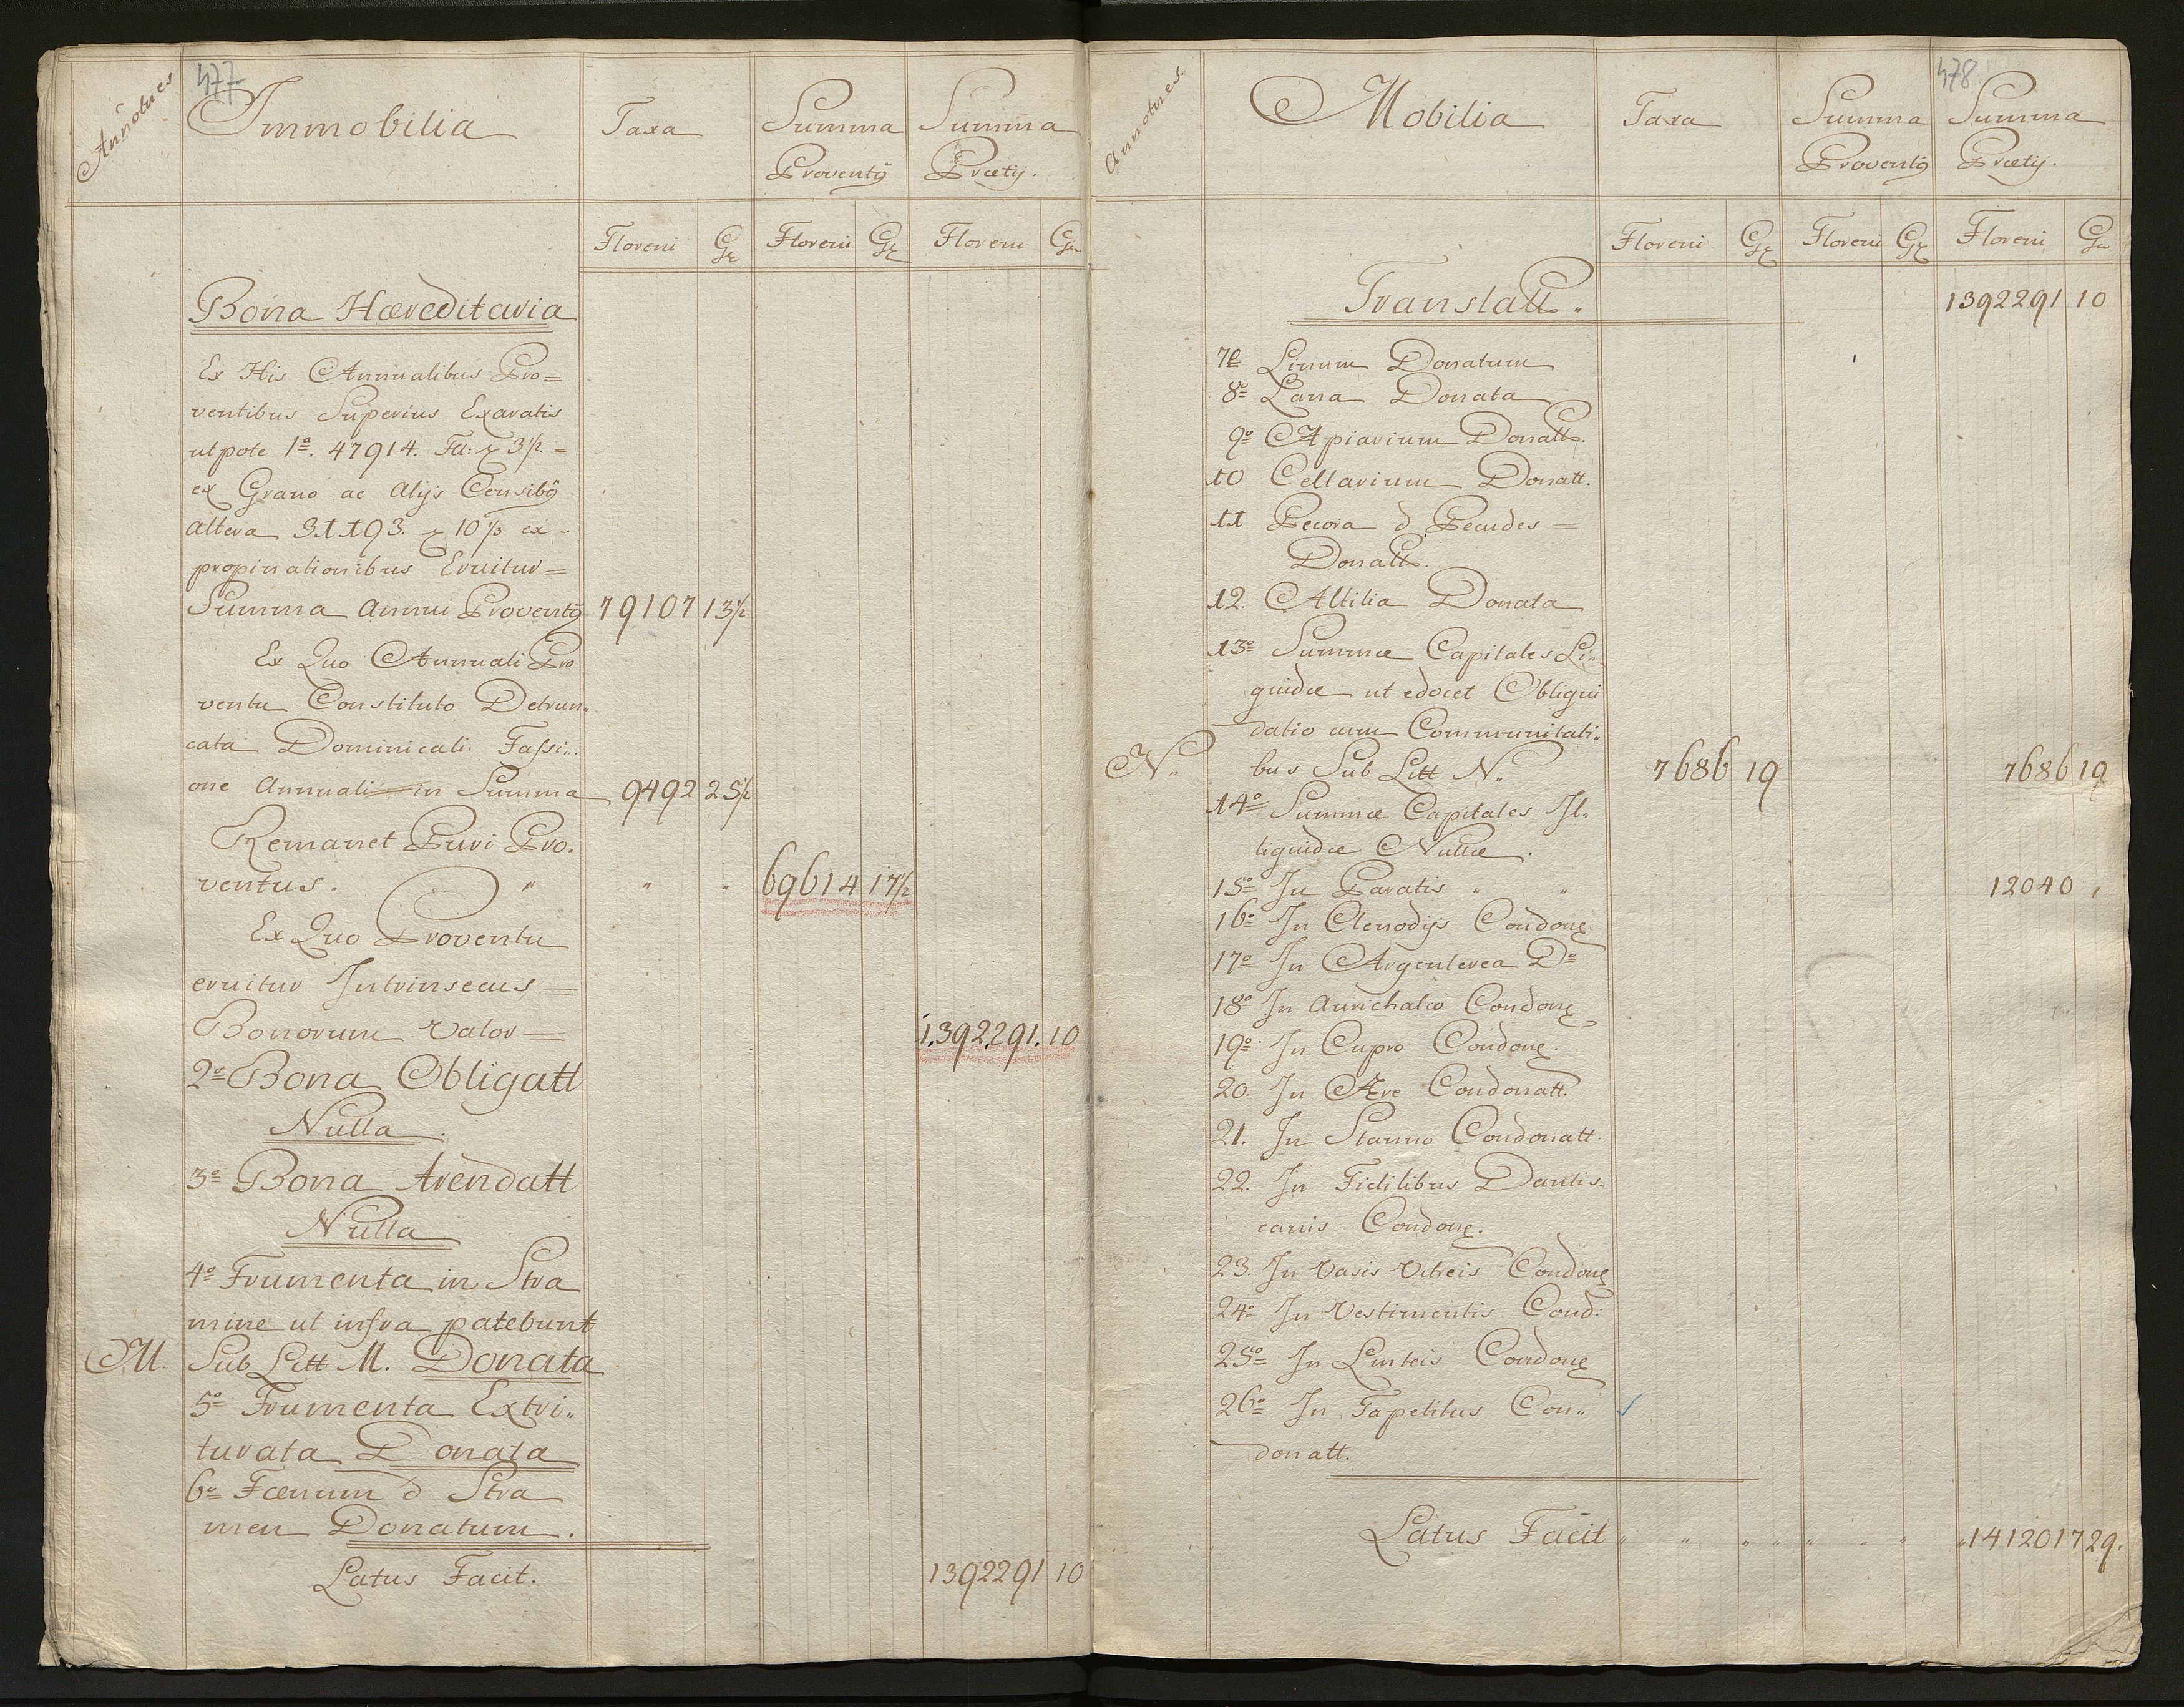 477
Annotnes
Immobilia
Taxa
Summa Proventg
Summa Prætij.
Floreni Gr Floreni Gr Floreni Gr
Bona Hæreditaria
Ex His Annualibus Pro=
ventibus Superius Exaratis
utpote 1º. 47914. Fll: 3½. =
ex Grano ac Alijs Censibg
altera 31193. 10⅓ ex=
propinationibus Eruitur=
Summa Annui Proventg 79107 13½
Ex Quo Annuali Pro
ventu Constituto Detrun„
cata Dominicali Fassi„
one Annuali in Summa 9492 25½
Remanet Puri Pro.
ventus. „ „ „ 69614 17½
Ex Quo Proventu
eruitur Intrinsecus=
Bonorum Valor= 1.392.291. 10
2º Bona Obligatt
Nulla.
3º Bona Arendatt
Nulla
4º Frumenta in Stra
mine ut infra patebunt
M. Sub Litt M. Donata
5º Frumenta Extri„
turata Donata
6º Fœnum & Stra
men Donatum.
Latus Facit. 1392291 10
478
Annotnes.
Mobilia
Taxa
Summa Proventg
Summa Prætij.
Floreni Gr Floreni Gr Floreni Gr
Translatt. 1392291 10
7º Linum Donatum
8º Lana Donata
9º Apiarium Donatt.
10 Cellarium Donatt.
11 Pecora & Pecudes=
Donatt.
12. Altilia Donata
13º Summæ Capitales Li„
quidæ ut edocet Obliqui
datio cum Communitati„
N„ bus Sub Litt N„ 7686 19 7686 19
14º Summæ Capitales Il„
liquidæ Nullæ.
15º In Paratis „ „ 12040 „
16º In Clenodijs Condonę
17º In Argenterea Dº
18º In Aurichalco Condonę
19º In Cupro Condonę.
20. In Ære Condonatt.
21. In Stanno Condonatt.
22. In Fidilibus Dantis„
canis Condonę.
23. In Vasis Vitreis Condonę
24º In Vestimentis Cond:
25º In Linteis Condonę
26º In Tapetitus Con„
donatt.
Latus Facit „ „ „ „ „ „ „ „ 1412017 29.